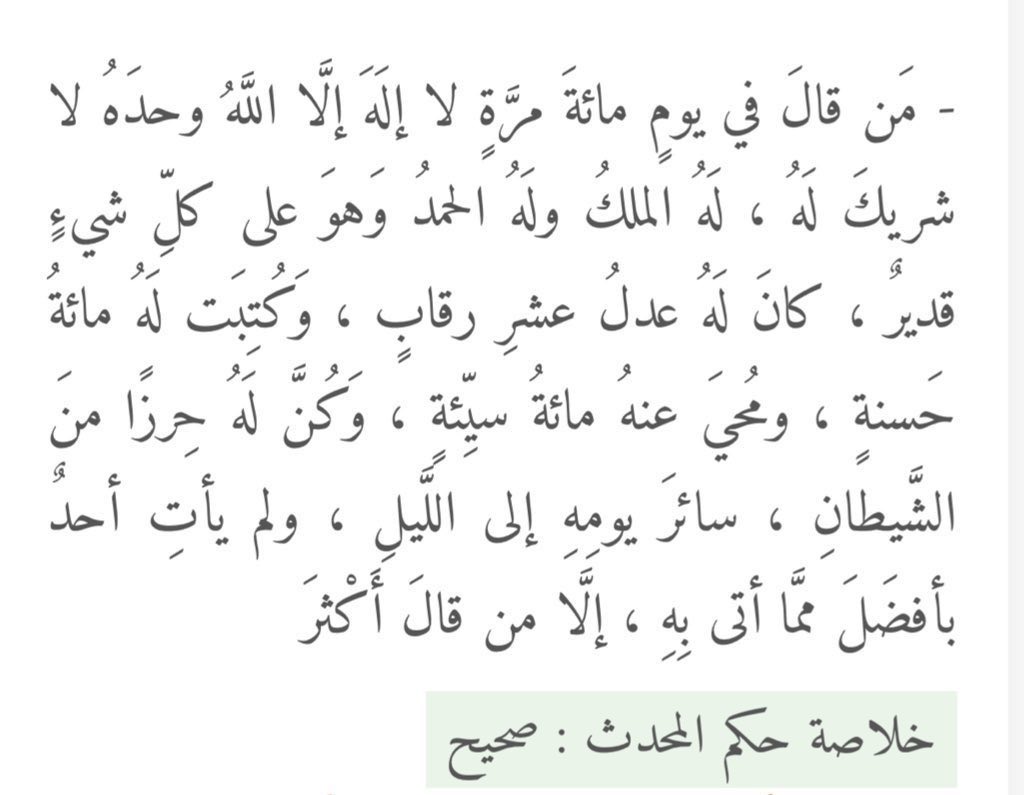 - مَن قالَ في يومٍ مائةَ مرَّةٍ لا إلَهَ إلَّا اللَّهُ وحدَهُ لا
شريكَ لَهُ ، لَهُ الملكُ ولَهُ الحمدُ وَهوَ على كلِّ شيءٍ
قديرٌ ، كانَ لَهُ عدلُ عشرِ رقابٍ ، وَكُتِبَت لَهُ مائةُ
حَسنةٍ ، ومُحيَ عنهُ مائةُ سيِّئةٍ ، وَكُنَّ لَهُ حِرزًا منَ
الشَّيطانِ ، سائرَ يومِهِ إلى اللَّيلِ ، ولم يأتِ أحدٌ
بأفضَلَ ممَّا أتى بِهِ ، إلَّا من قالَ أَكْثرَ
خلاصة حكم المحدث : صحيح